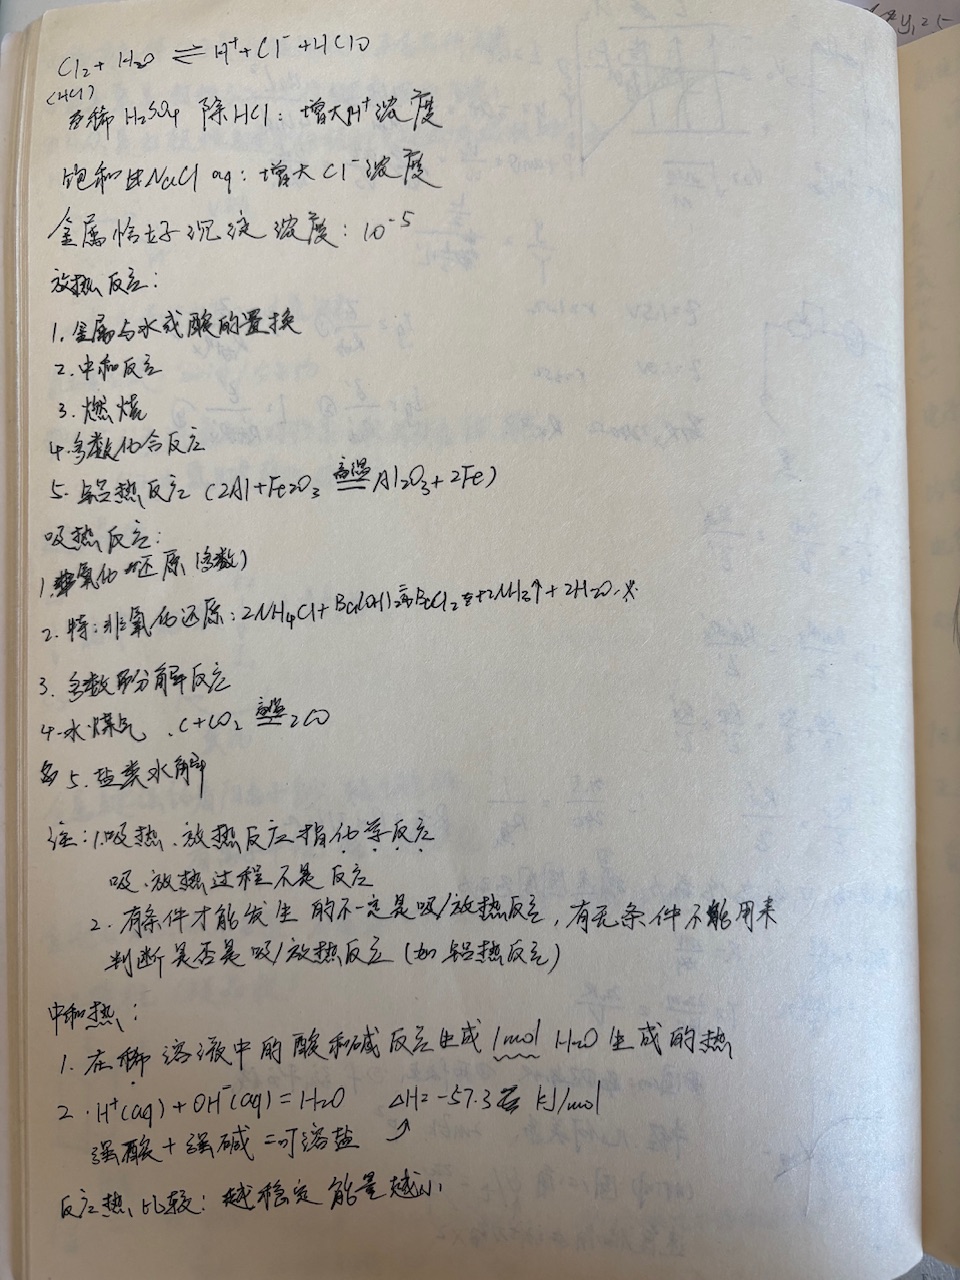 Cl₂ + H₂O ⇌ H⁺ + Cl⁻ + HClO
(HCl)
稀 H₂SO₄ 除HCl: 增大H⁺浓度
饱和NaCl aq: 增大Cl⁻浓度
金属恰好沉淀浓度: 10⁻⁵
放热反应:
1. 金属与水或酸的置换
2. 中和反应
3. 燃烧
4. 多数化合反应
5. 铝热反应 (2Al+Fe₂O₃ 高温═ Al₂O₃+2Fe)
吸热反应:
1. 氧化还原(多数)
2. 特: 非氧化还原: 2NH₄Cl + Ba(OH)₂ = BaCl₂ + 2NH₃↑ + 2H₂O.
3. 多数分解反应
4. 水煤气、C+CO₂ 高温═ 2CO
5. 盐类水解
注: 1. 吸热、放热反应指化学反应
吸、放热过程不是反应
2. 有条件才能发生的不一定是吸/放热反应, 有无条件不能用来
判断是否是吸/放热反应 (如铝热反应)
中和热:
1. 在稀溶液中的酸和碱反应生成1mol H₂O生成的热
2. H⁺(aq) + OH⁻(aq) = H₂O ΔH = -57.3 kJ/mol
强酸 + 强碱 = 可溶盐
反应热比较: 越稳定能量越小